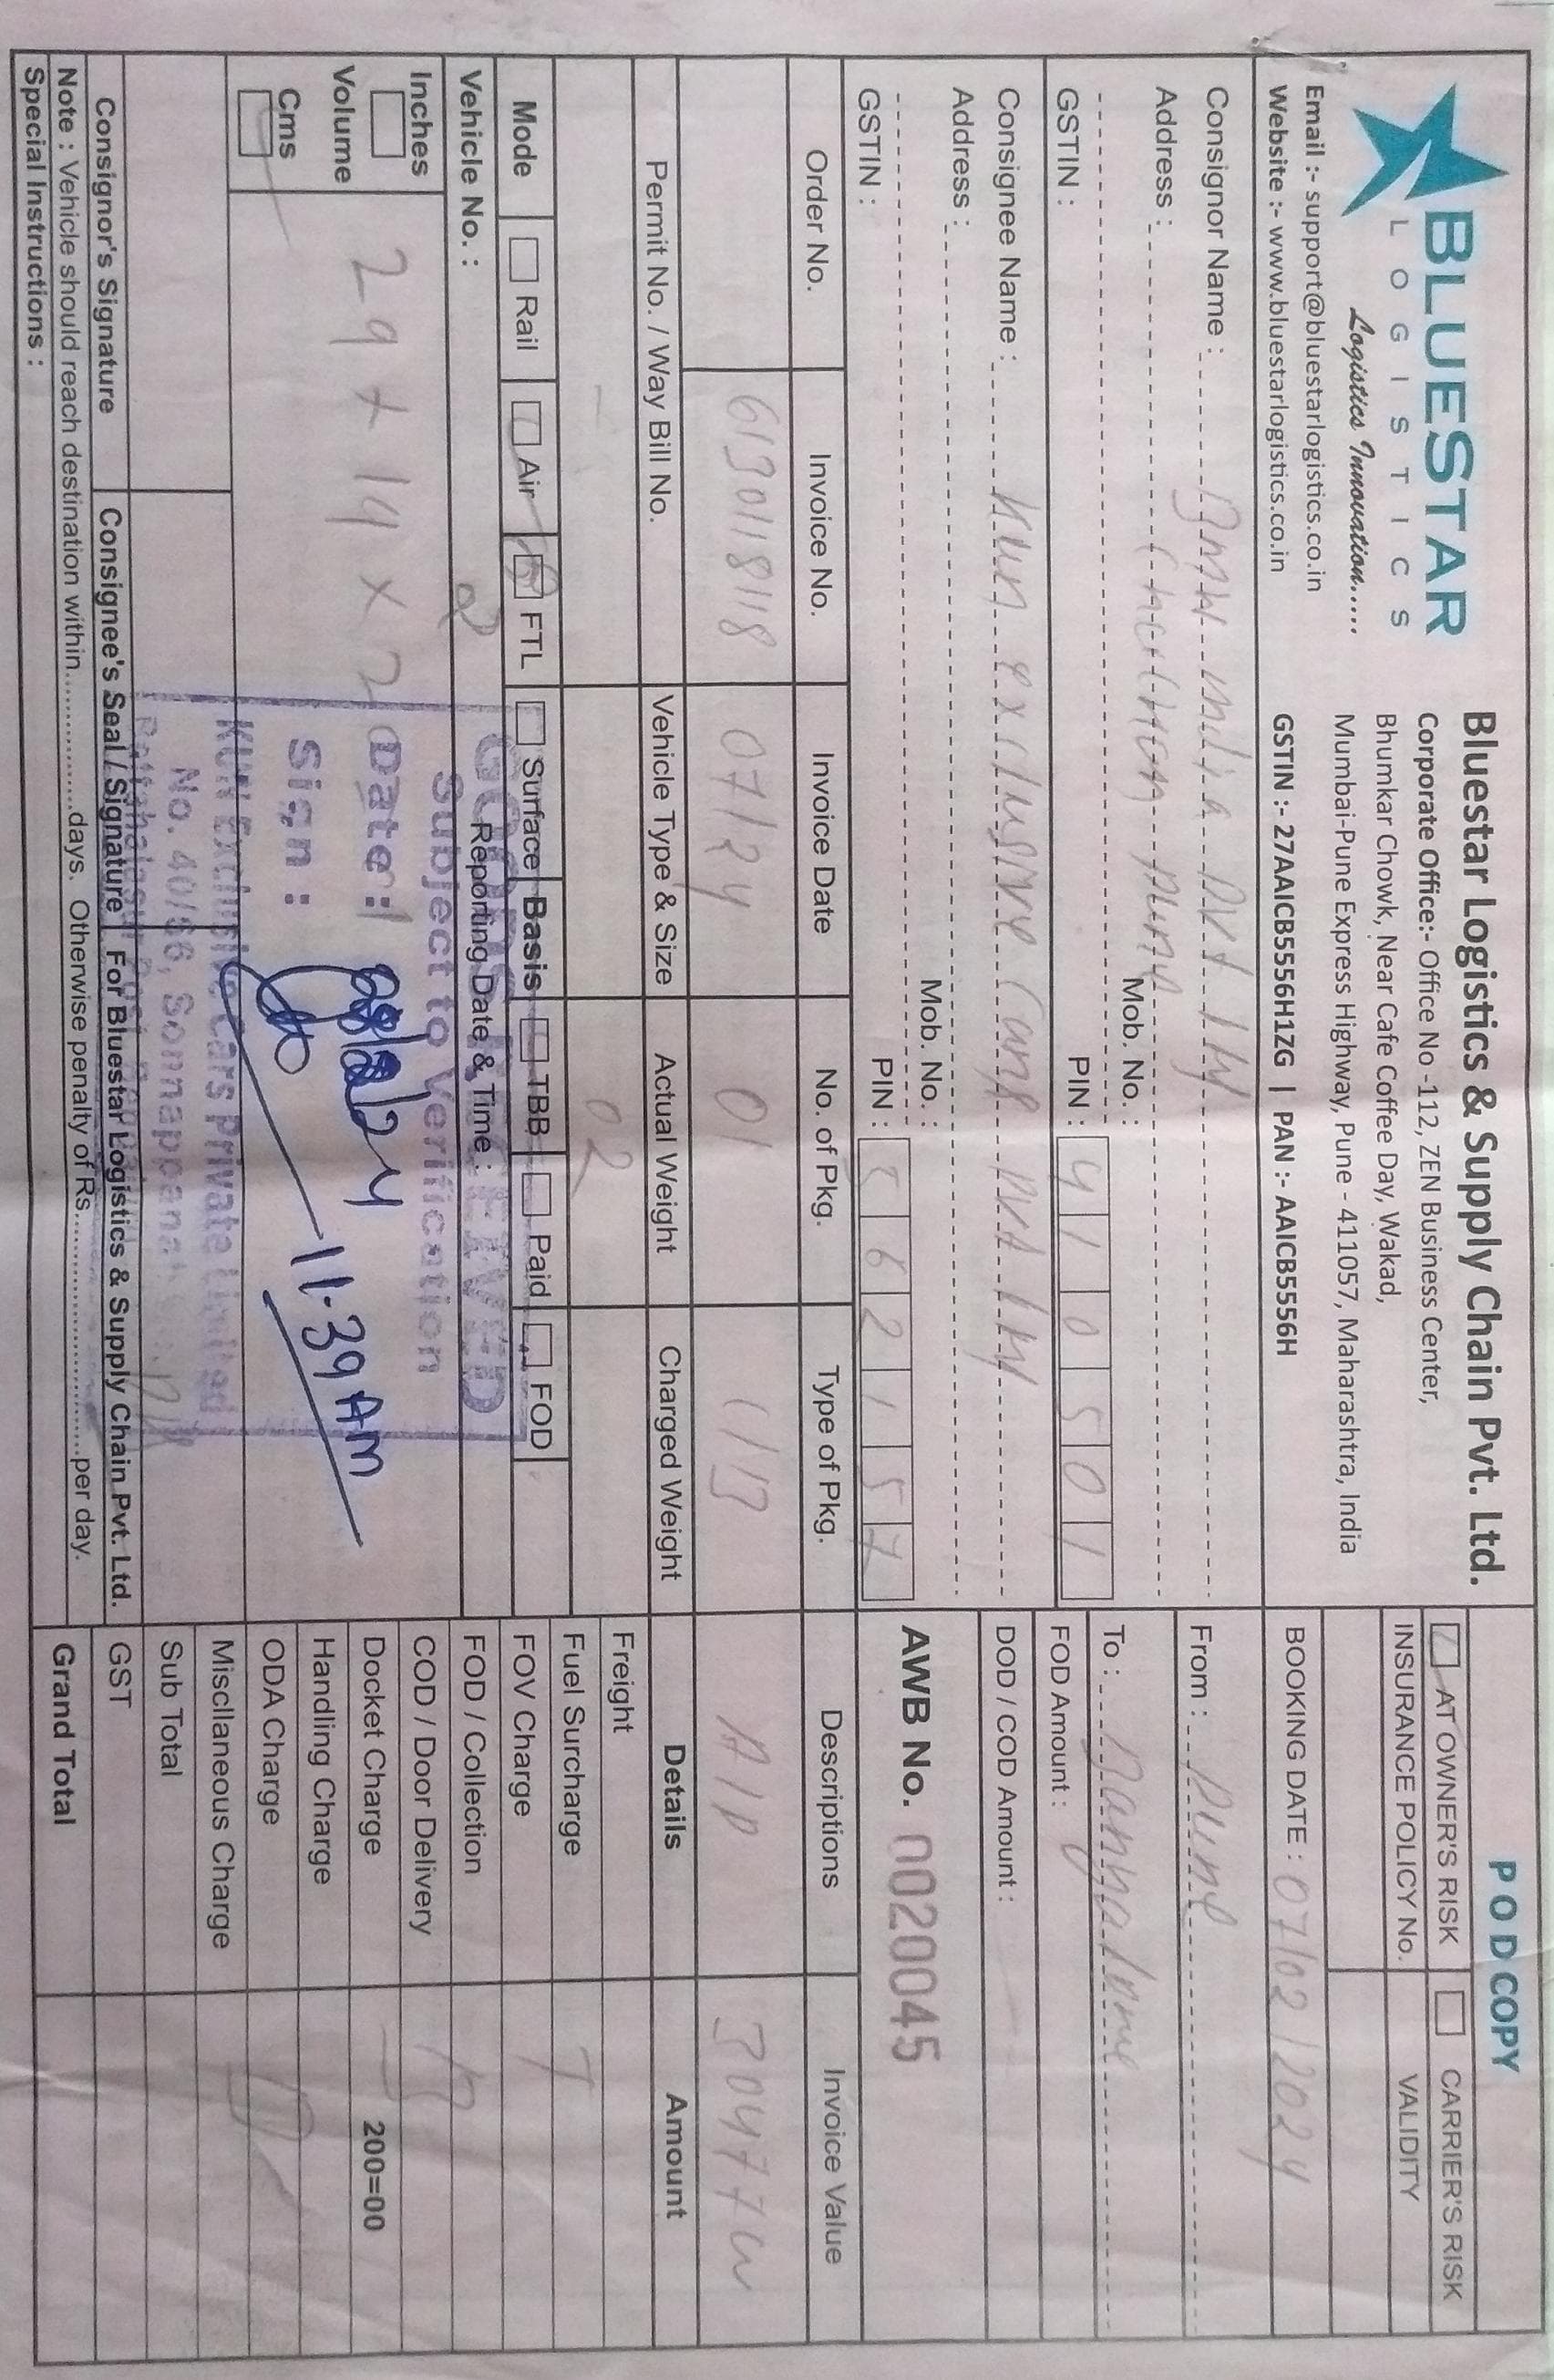 BLUESTAR
LOGISTICS
Logistics Innovation.....
Email :- support@bluestarlogistics.co.in
Website :- www.bluestarlogistics.co.in
Bluestar Logistics & Supply Chain Pvt. Ltd.
Corporate Office:- Office No -112, ZEN Business Center,
Bhumkar Chowk, Near Cafe Coffee Day, Wakad,
Mumbai-Pune Express Highway, Pune - 411057, Maharashtra, India
GSTIN :- 27AAICB5556H1ZG | PAN :- AAICB5556H
POD COPY
AT OWNER'S RISK CARRIER'S RISK
INSURANCE POLICY No. VALIDITY
BOOKING DATE : 07/02/2024
Consignor Name : BMW India Pvt Ltd
Address : Chakan Pune
Mob. No. :
GSTIN : PIN : 410501
From : Pune
To : Bangalore
FOD Amount :
DOD / COD Amount :
Consignee Name : Kun exclusive Cars Pvt Ltd
Address :
Mob. No. :
GSTIN : PIN : 562157
AWB No. 0020045
Order No. Invoice No. Invoice Date No. of Pkg. Type of Pkg. Descriptions Invoice Value
6130118118 07/24 01 C/B A/P 30477
Permit No. / Way Bill No. Vehicle Type & Size Actual Weight Charged Weight Details Amount
02
Mode Rail Air FTL Surface Basis TBB Paid FOD
Vehicle No. : 2 Reporting Date & Time :
Inches
Volume
Cms
29 x 19 x 2
GOODS RECEIVED
Subject to Verification
Date : 08/2/24
11-39 AM
Sign :
KUN Exclusive Cars Private Limited
No. 40/66, Sonnappanah
Bettahalasur Post, Bengaluru
Freight
Fuel Surcharge T
FOV Charge
FOD / Collection
COD / Door Delivery B
Docket Charge 200=00
Handling Charge
ODA Charge
Miscllaneous Charge
Sub Total
GST
Grand Total
Consignor's Signature Consignee's Seal / Signature For Bluestar Logistics & Supply Chain Pvt. Ltd.
Note : Vehicle should reach destination within...............days. Otherwise penalty of Rs...........................per day.
Special Instructions :